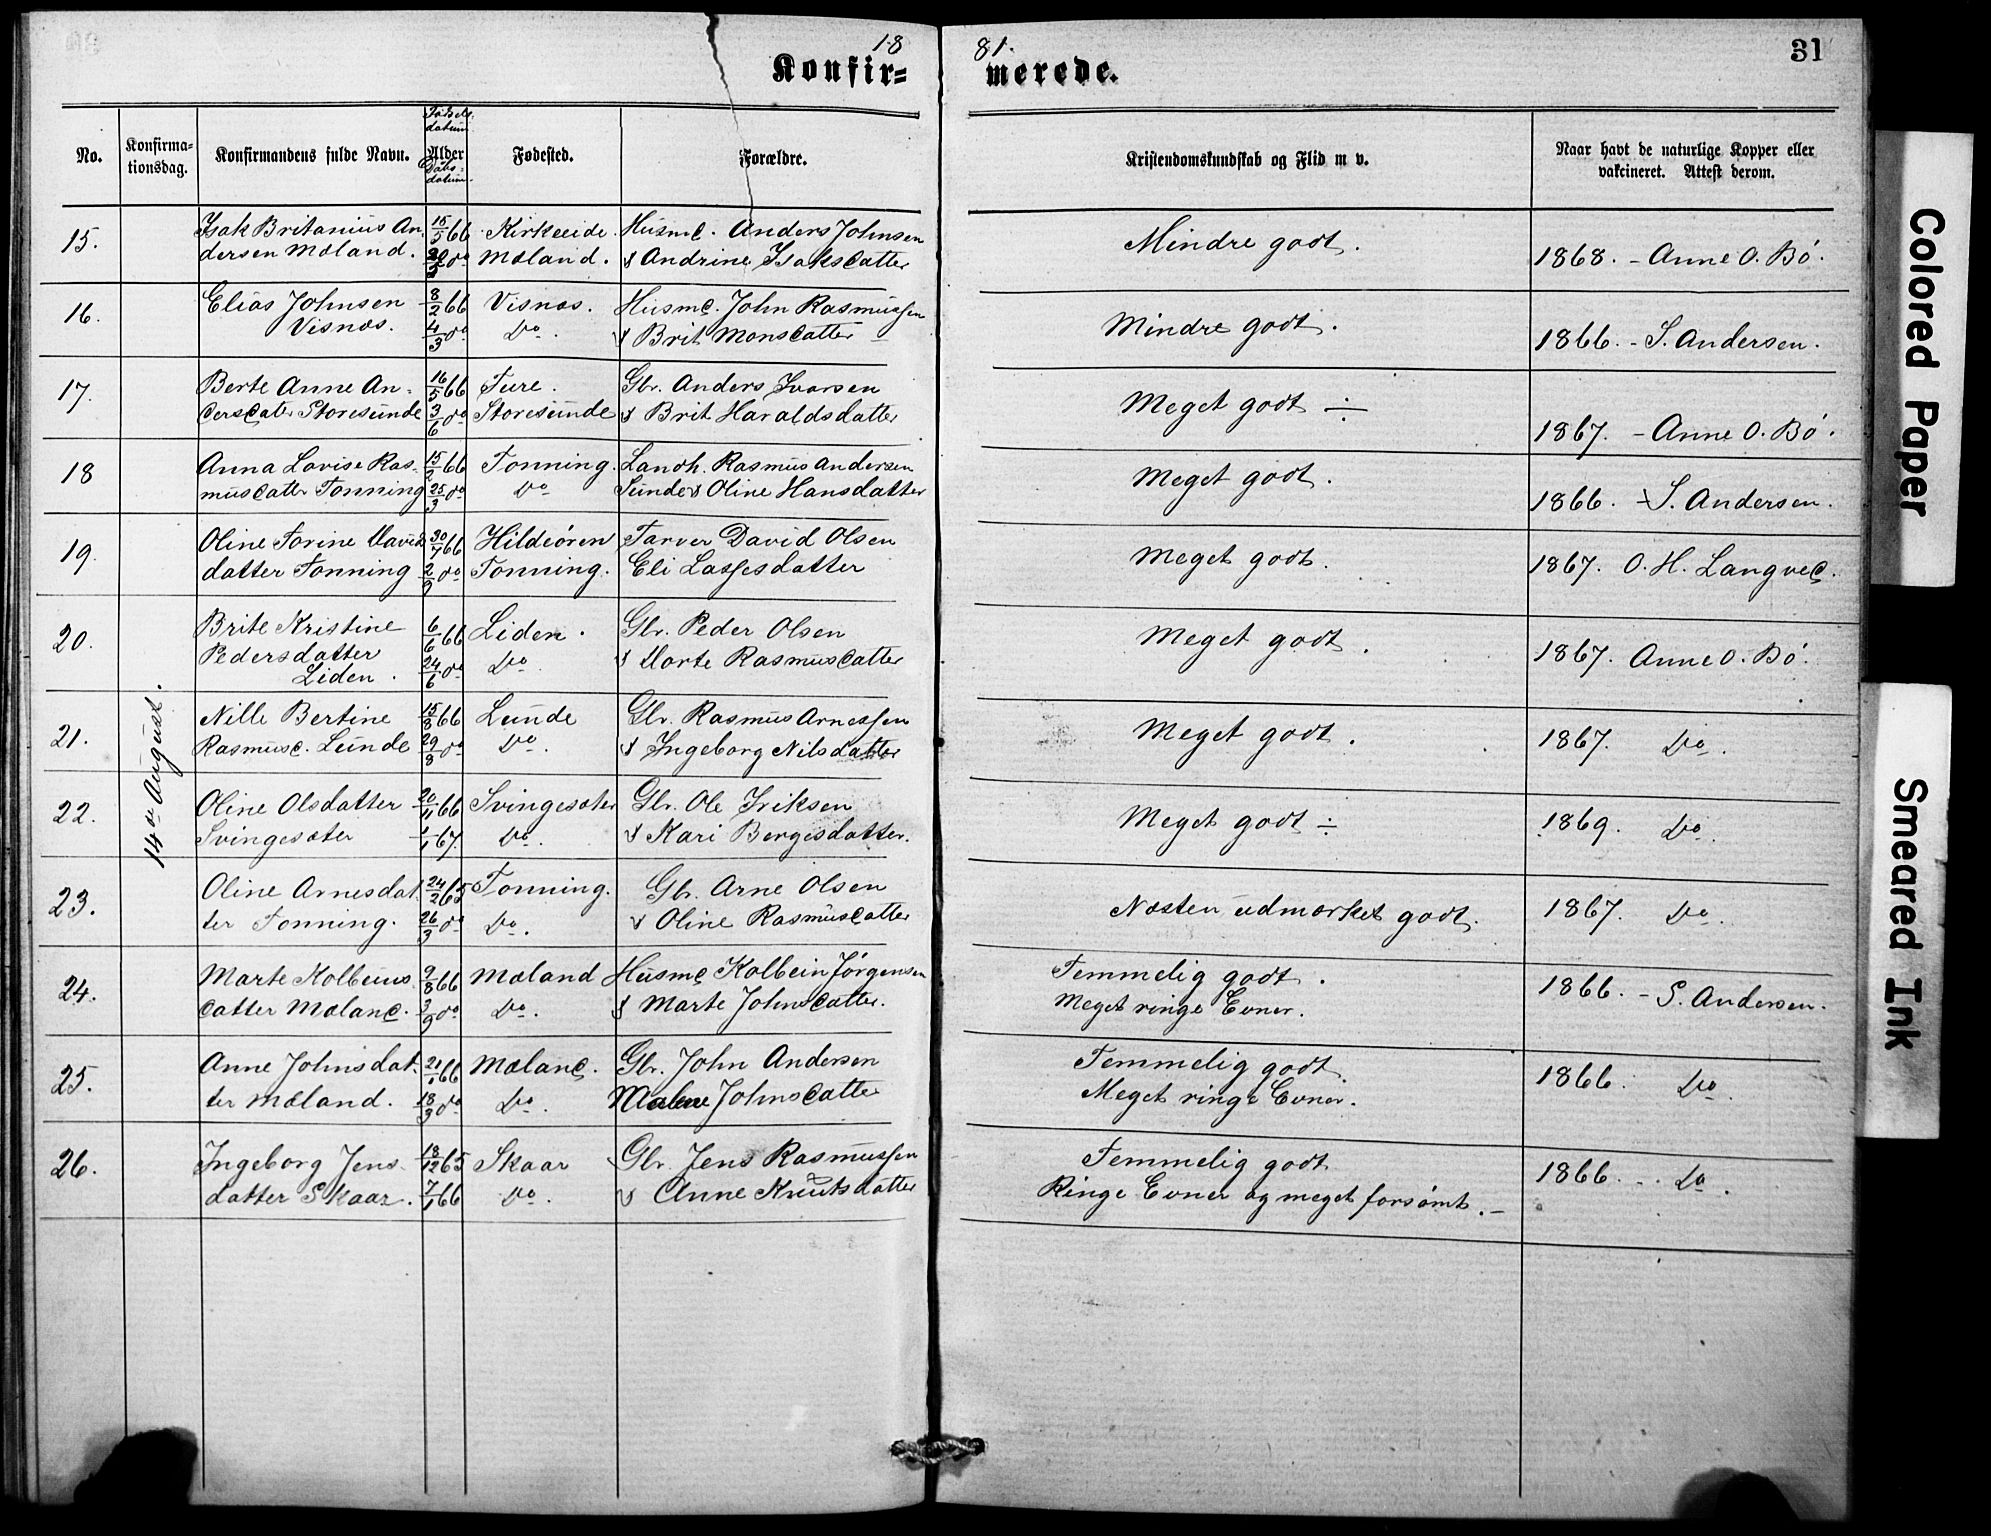 18 81.
31
Konfir= merede.
No.
Konfirma-
tionsdag.
Konfirmandens fulde Navn.
Fødsels-
datum.
Alder
Daabs-
datum.
Fødested.
Forældre.
Kristendomskundskab og Flid m v.
Naar havt de naturlige Kopper eller
vakcineret. Attest derom.
14de August.
15. Isak Britanius An- 15/5 66 Kirkeeide Husmd. Anders Johnsen Mindre godt.
dersen Mæland. do Mæland. & Andrine Isaksdatter 1868. - Anne O. Bö.
16. Elias Johnsen 8/2 66 Visnæs. Husmd. John Rasmussen Mindre godt.
Visnæs. 4/3 do Do. & Brit Monsdatter 1866. - S. Andersen.
17. Berte Anne An- 16/5 66 Ture. Gbr. Anders Ivarsen Meget godt ÷
dersdater Storesunde 3/6 do Storesunde & Brit Haraldsdatter 1867. - Anne O. Bö.
18 Anna Lovise Ras- 15/2 66 Tonning. Landh. Rasmus Andersen Meget godt.
musdatter Tonning 25/3 do Do Sunde & Oline Hansdatter 1866. - S. Andersen.
19. Oline Torine David 30/7 66 Hildeören Farver David Olsen Meget godt.
datter Tonning 2/9 do Tonning. Eli Lassesdatter 1867. O. H. Langved.
20. Brite Kristine 6/6 66 Liden. Gbr. Peder Olsen Meget godt.
Pedersdatter 24/6 do Do. & Marte Rasmusdatter 1867. Anne O. Bö.
Liden.
21. Nille Bertine 15/8 66 Lunde Gbr. Rasmus Arnessen Meget godt.
Rasmusd. Lunde 29/8 do Do. & Ingeborg Nilsdatter 1867. Do.
22. Oline Olsdatter 20/11 66 Svingesæter Gbr. Ole Iriksen Meget godt ÷
Svingesæter 1/1 67. Do. & Kari Bergesdatter. 1869. Do.
23. Oline Arnesdat- 24/2 65 Tonning. Gbr. Arne Olsen Næsten udmærket godt.
ter Tonning. 26/3 do Do. & Oline Rasmusdatter 1867. Do.
24. Marte Kolbeins- 9/8 66 Mæland Husmd Kolbein Jörgensen Temmelig godt.
datter Mæland. 3/9 do Do. & Marte Johnsdatter. Meget ringe Evner. 1866. - S. Andersen.
25. Anne Johnsdat- 21/1 66 Mæland. Gbr. John Andersen Temmelig godt.
ter Mæland. 18/3 do Do. Malene Johnsdatter Meget ringe Evner. 1866. Do.
26. Ingeborg Jens- 18/12 65 Skaar Gbr. Jens Rasmussen Temmelig godt
datter Skaar. 7/1 66 Do. & Anne Knutsdatter Ringe Evner og meget forsömt. - 1866. Do.
Colored Paper
Smeared Ink